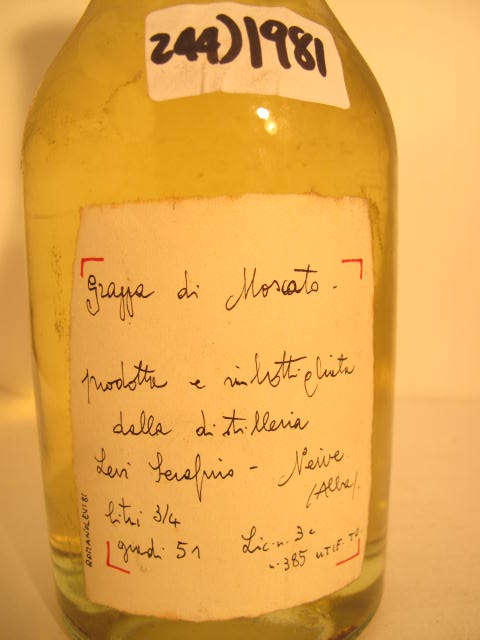 244) 1981
Grappa di Moscato -
prodotta e imbottigliata
dalla distilleria
Levi Serafino - Neive
(Alba).
litri 3/4
gradi 51
Lic. n. 3e
n. 385 UTIF. TO
ROMANO LEVI 81